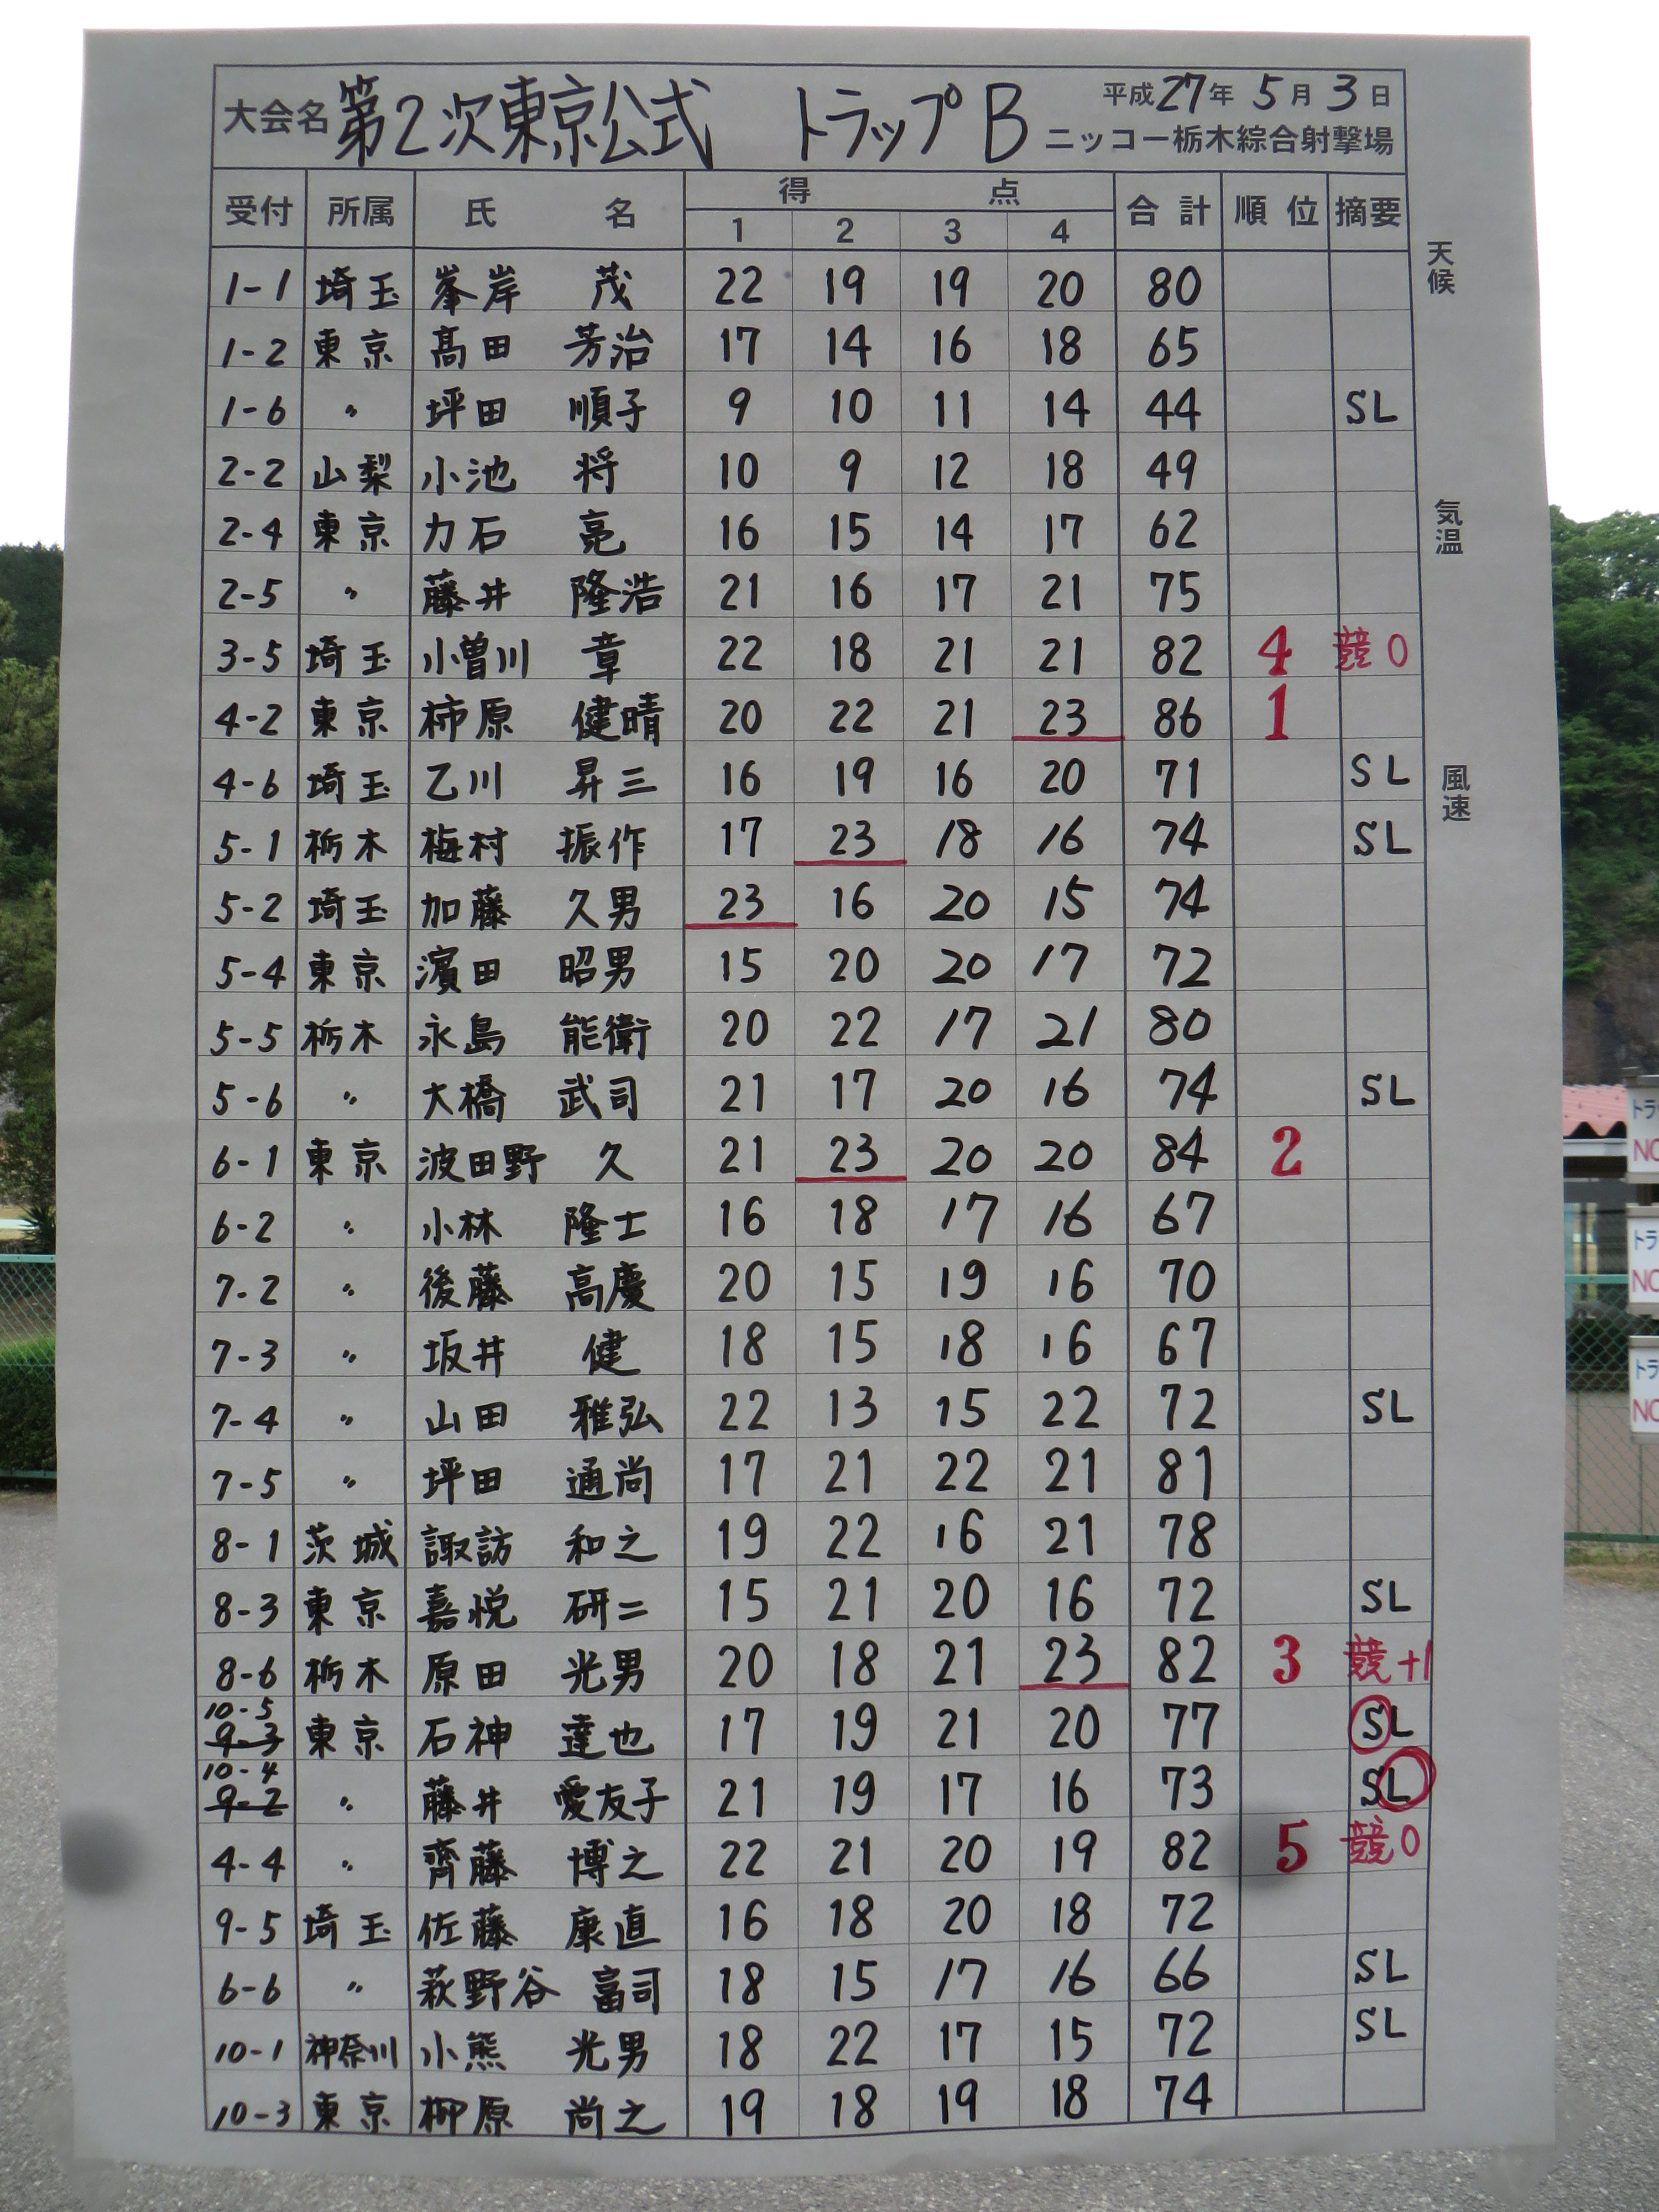 大会名 第2次東京公式 トラップB 平成27年5月3日
ニッコー栃木綜合射撃場
受付 所属 氏名 得点 合計 順位 摘要
1 2 3 4
1-1 埼玉 峯岸 茂 22 19 19 20 80
1-2 東京 髙田 芳治 17 14 16 18 65
1-6 〃 坪田 順子 9 10 11 14 44 SL
2-2 山梨 小池 将 10 9 12 18 49
2-4 東京 力石 亮 16 15 14 17 62
2-5 〃 藤井 隆浩 21 16 17 21 75
3-5 埼玉 小曽川 章 22 18 21 21 82 4 競0
4-2 東京 柿原 健晴 20 22 21 23 86 1
4-6 埼玉 乙川 昇三 16 19 16 20 71 SL
5-1 栃木 梅村 振作 17 23 18 16 74 SL
5-2 埼玉 加藤 久男 23 16 20 15 74
5-4 東京 濱田 昭男 15 20 20 17 72
5-5 栃木 永島 能衛 20 22 17 21 80
5-6 〃 大橋 武司 21 17 20 16 74 SL
6-1 東京 波田野 久 21 23 20 20 84 2
6-2 〃 小林 隆士 16 18 17 16 67
7-2 〃 後藤 高慶 20 15 19 16 70
7-3 〃 坂井 健 18 15 18 16 67
7-4 〃 山田 雅弘 22 13 15 22 72 SL
7-5 〃 坪田 通尚 17 21 22 21 81
8-1 茨城 諏訪 和之 19 22 16 21 78
8-3 東京 嘉悦 研二 15 21 20 16 72 SL
8-6 栃木 原田 光男 20 18 21 23 82 3 競+1
10-5
9-3 東京 石神 達也 17 19 21 20 77 SL
10-4
9-2 〃 藤井 愛友子 21 19 17 16 73 SL
4-4 〃 齊藤 博之 22 21 20 19 82 5 競0
9-5 埼玉 佐藤 康直 16 18 20 18 72
6-6 〃 萩野谷 富司 18 15 17 16 66 SL
10-1 神奈川 小熊 光男 18 22 17 15 72 SL
10-3 東京 柳原 尚之 19 18 19 18 74
天候
気温
風速
トラ
NO
トラ
NO
トラ
NO